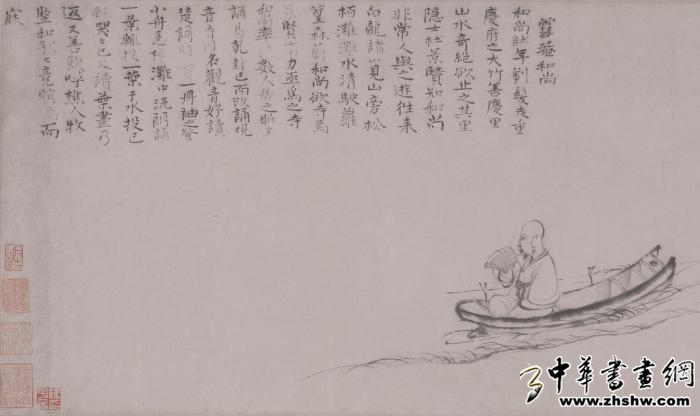 雪菴和尚
和尚壯年剃髮走重
慶府之大竹善慶里
山水奇絕欲止之其里
隱士杜景賢知和尚
非常人與之遊往來
白龍諸山見山旁松
栢灘灘水清駛蘿
篁森蔚和尚欲寺焉
賢有力亟為之寺
和尚率數人居之昕夕
誦易乾卦已而改誦觀
音寺因名觀音好讀
楚詞時買一冊袖之登
小舟急棹灘中流朗誦
一葉輒投一葉于水投已
輒哭哭已又讀葉盡乃
返又善飲呼樵人牧
豎和歌歌竟瞑而
寐
中華書畫網
www.zhshw.com